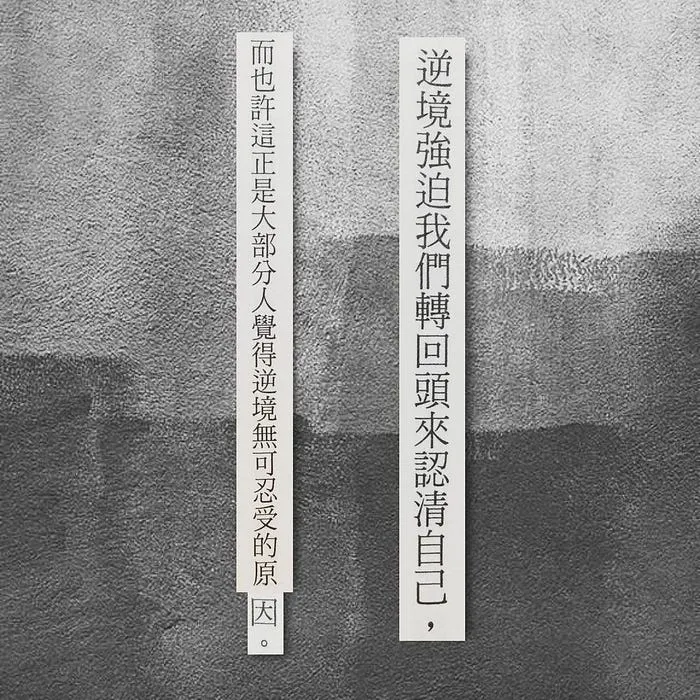 逆境強迫我們轉回頭來認清自己，
而也許這正是大部分人覺得逆境無可忍受的原
因。